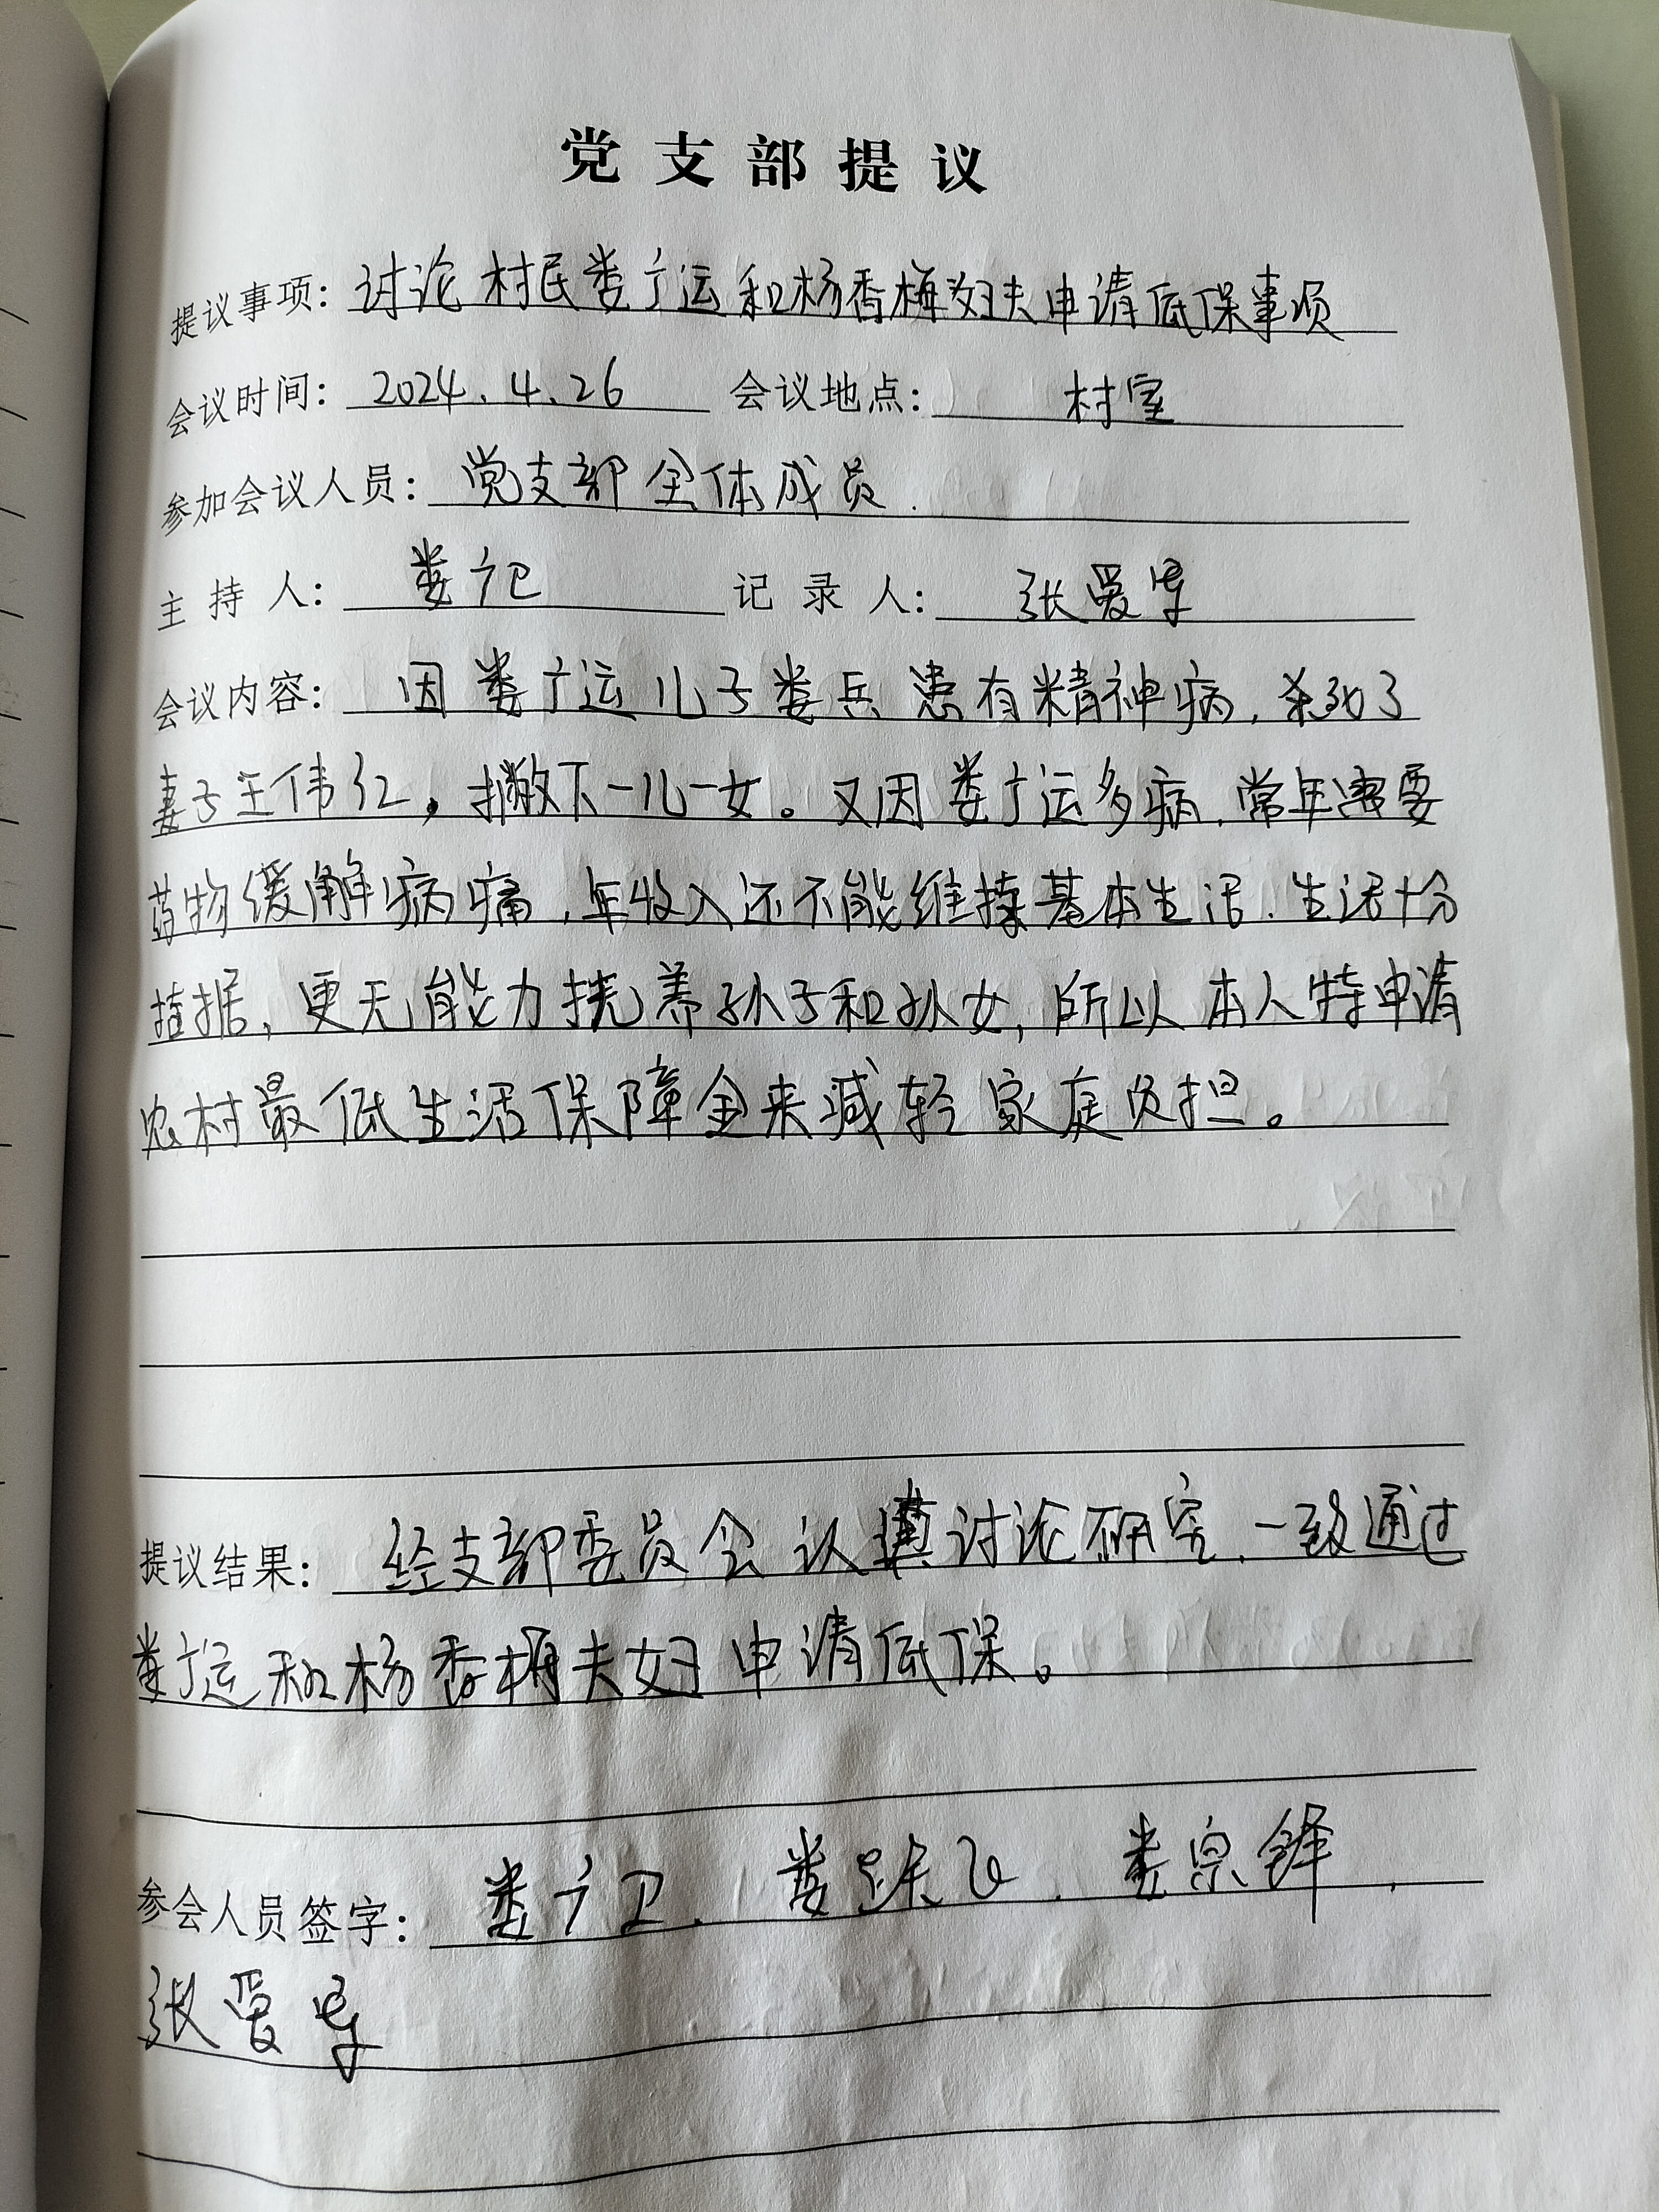 党支部提议
提议事项: 讨论村民娄广运和杨香梅妇夫申请低保事项
会议时间: 2024.4.26 会议地点: 村室
参加会议人员: 党支部全体成员.
主持人: 娄广 记录人: 张爱
会议内容: 因娄广运儿子娄兵患有精神病,杀死了
妻子王伟红,撇下一儿一女。又因娄广运多病,常年需要
药物缓解病痛,年收入还不能维持基本生活.生活十分
拮据,更无能力抚养孙子和孙女,所以本人特申请
农村最低生活保障金来减轻家庭负担。
提议结果: 经支部委员会认真讨论研究,一致通过
娄广运和杨香梅夫妇申请低保。
参会人员签字: 娄广卫. 娄跃飞. 娄宗锋.
张爱